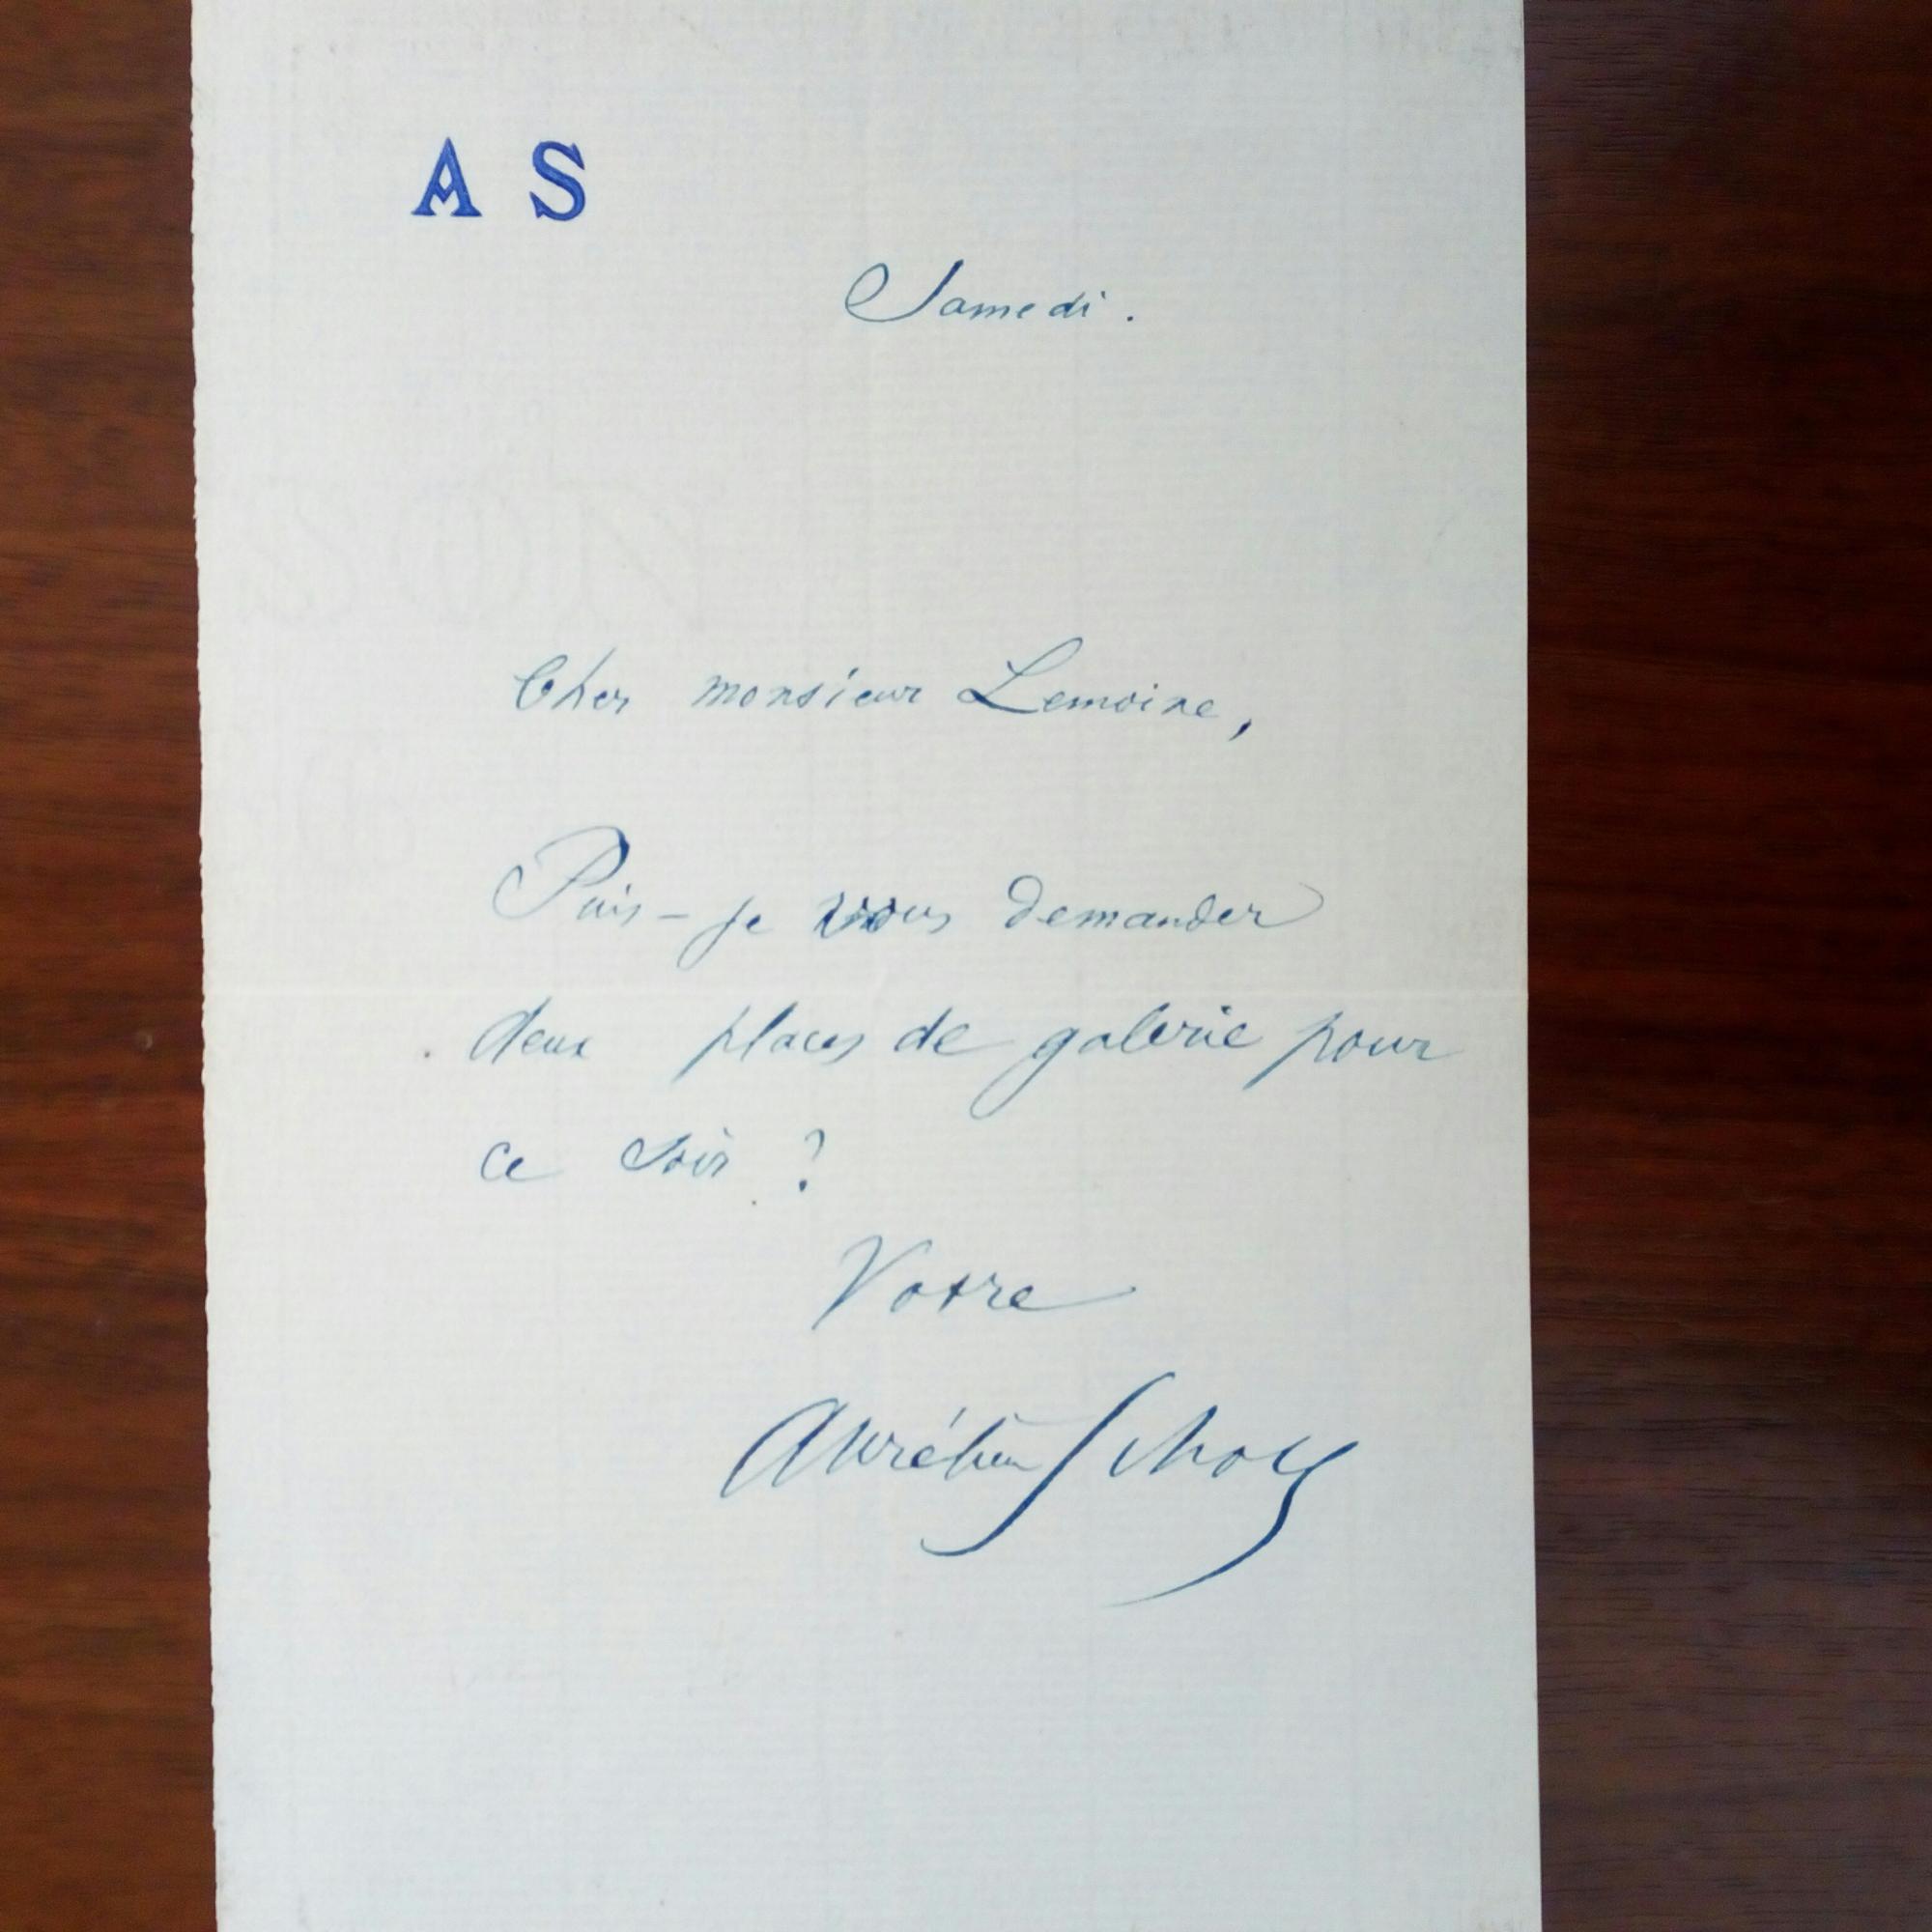 A S
Samedi.
Cher monsieur Lemoine,
Puis-je vous demander
deux places de galerie pour
ce soir ?
Votre
Aurélien Scholl